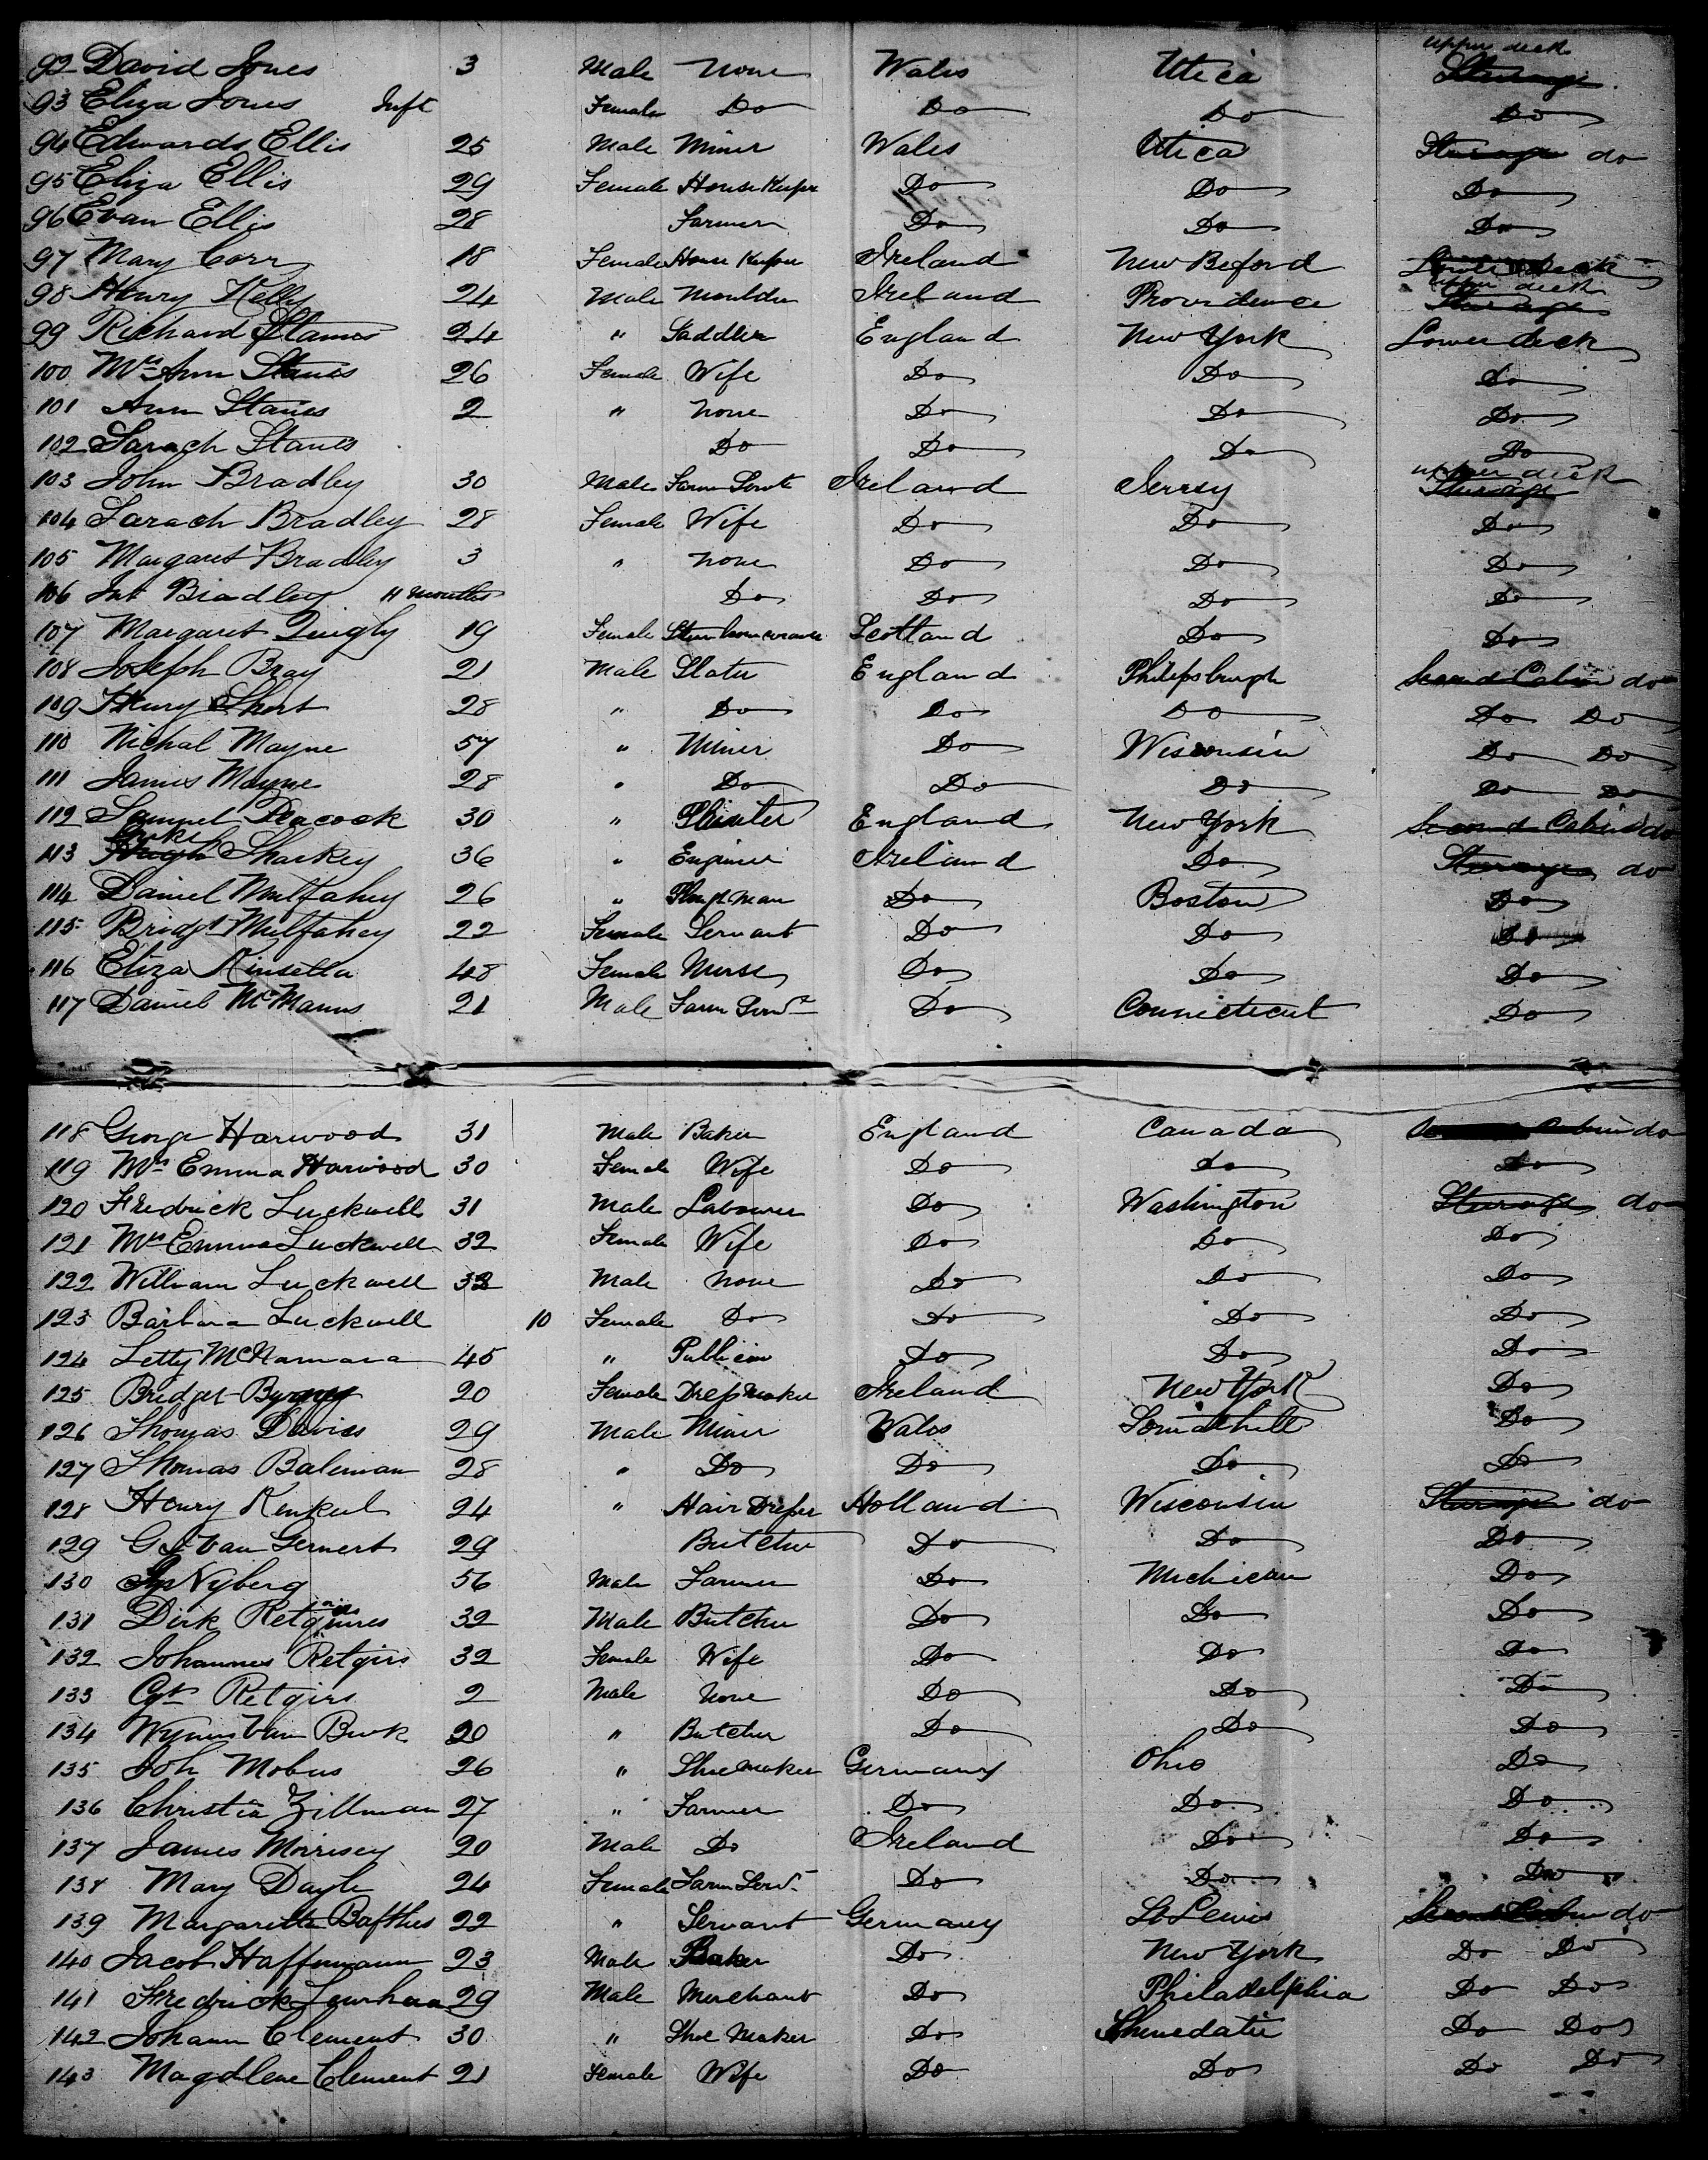 92 David Jones 3 Male None Wales Utica upper deck Steerage
93 Eliza Jones Inft Female Do Do Do Do
94 Edwards Ellis 25 Male Miner Wales Utica Steerage do
95 Eliza Ellis 29 Female House Keeper Do Do Do
96 Evan Ellis 28 Farmer Do Do Do
97 Mary Corr 18 Female House Keeper Ireland New Beford Lower Deck
98 Henry Kelly 24 Male Moulder Ireland Providence upper deck Steerage
99 Richard Stanes 24 " Saddler England New York Lower deck
100 Mrs Ann Stanes 26 Female Wife Do Do Do
101 Ann Stanes 2 " None Do Do Do
102 Sarach Stanes Do Do Do Do
103 John Bradley 30 Male Farm Servt Ireland Jersey upper deck Steerage
104 Sarach Bradley 28 Female Wife Do Do Do
105 Margaret Bradley 3 " None Do Do Do
106 Inf Bradley 11 Months Do Do Do Do
107 Margaret Quigly 19 Female Scotland Do Do
108 Joseph Bray 21 Male Slater England Philipsburgh Second Cabin do
109 Henry Short 28 " Do Do Do Do Do
110 Nichal Mayne 57 " Miner Do Wisconsin Do Do
111 James Mayne 28 " Do Do Do Do Do
112 Samuel Peacock 30 " England New York Second Cabin do
113 Hugh Sharkey 36 " Engineer Ireland Do Steerage do
114 Daniel Mulfahey 26 " Do Boston Do
115 Bridgt Mulfahey 22 Female Servant Do Do Do
116 Eliza Kinsella 48 Female Nurse Do Do Do
117 Daniel McManus 21 Male Farm Servt Do Connecticut Do
118 George Harwood 31 Male Baker England Canada Cabin do
119 Mrs Emma Harwood 30 Female Wife Do Do Do
120 Fredrick Luckwell 31 Male Labourer Do Washington Steerage do
121 Mrs Emma Luckwell 32 Female Wife Do Do Do
122 William Luckwell Male None Do Do Do
123 Barbara Luckwell 10 Female Do Do Do Do
124 Letty McNamara 45 " Publican Do Do Do
125 Bridget 20 Female Dress Maker Ireland New York Do
126 Thomas Davies 29 Male Miner Wales Do
127 Thomas Baleman 28 " Do Do Do Do
128 Henry Kenkul 24 " Hair Dresser Holland Wisconsin Steerage do
129 G Van Gernert 29 Butcher Do Do Do
130 Nyberg 56 Male Farmer Do Michican Do
131 Dirk 32 Male Butcher Do Do Do
132 Johannes Retgirs 32 Female Wife Do Do Do
133 Retgirs 2 Male None Do Do Do
134 Van Buck 20 " Butcher Do Do Do
135 Joh Mobus 26 " Shoe Maker Germany Ohio Do
136 Christia Zillman 27 " Farmer Do Do Do
137 James Morrisey 20 Male Do Ireland Do Do
138 Mary Dayle 24 Female Farm Servt Do Do Do
139 Margaretta 22 " Servant Germany St Lewis Second Cabin do
140 Jacob Haffmann 23 Male Baker Do New York Do Do
141 Fredrick 29 Male Merchant Do Philadelphia Do Do
142 Johann Clement 30 " Shoe Maker Do Do Do
143 Magdlene Clement 21 Female Wife Do Do Do Do